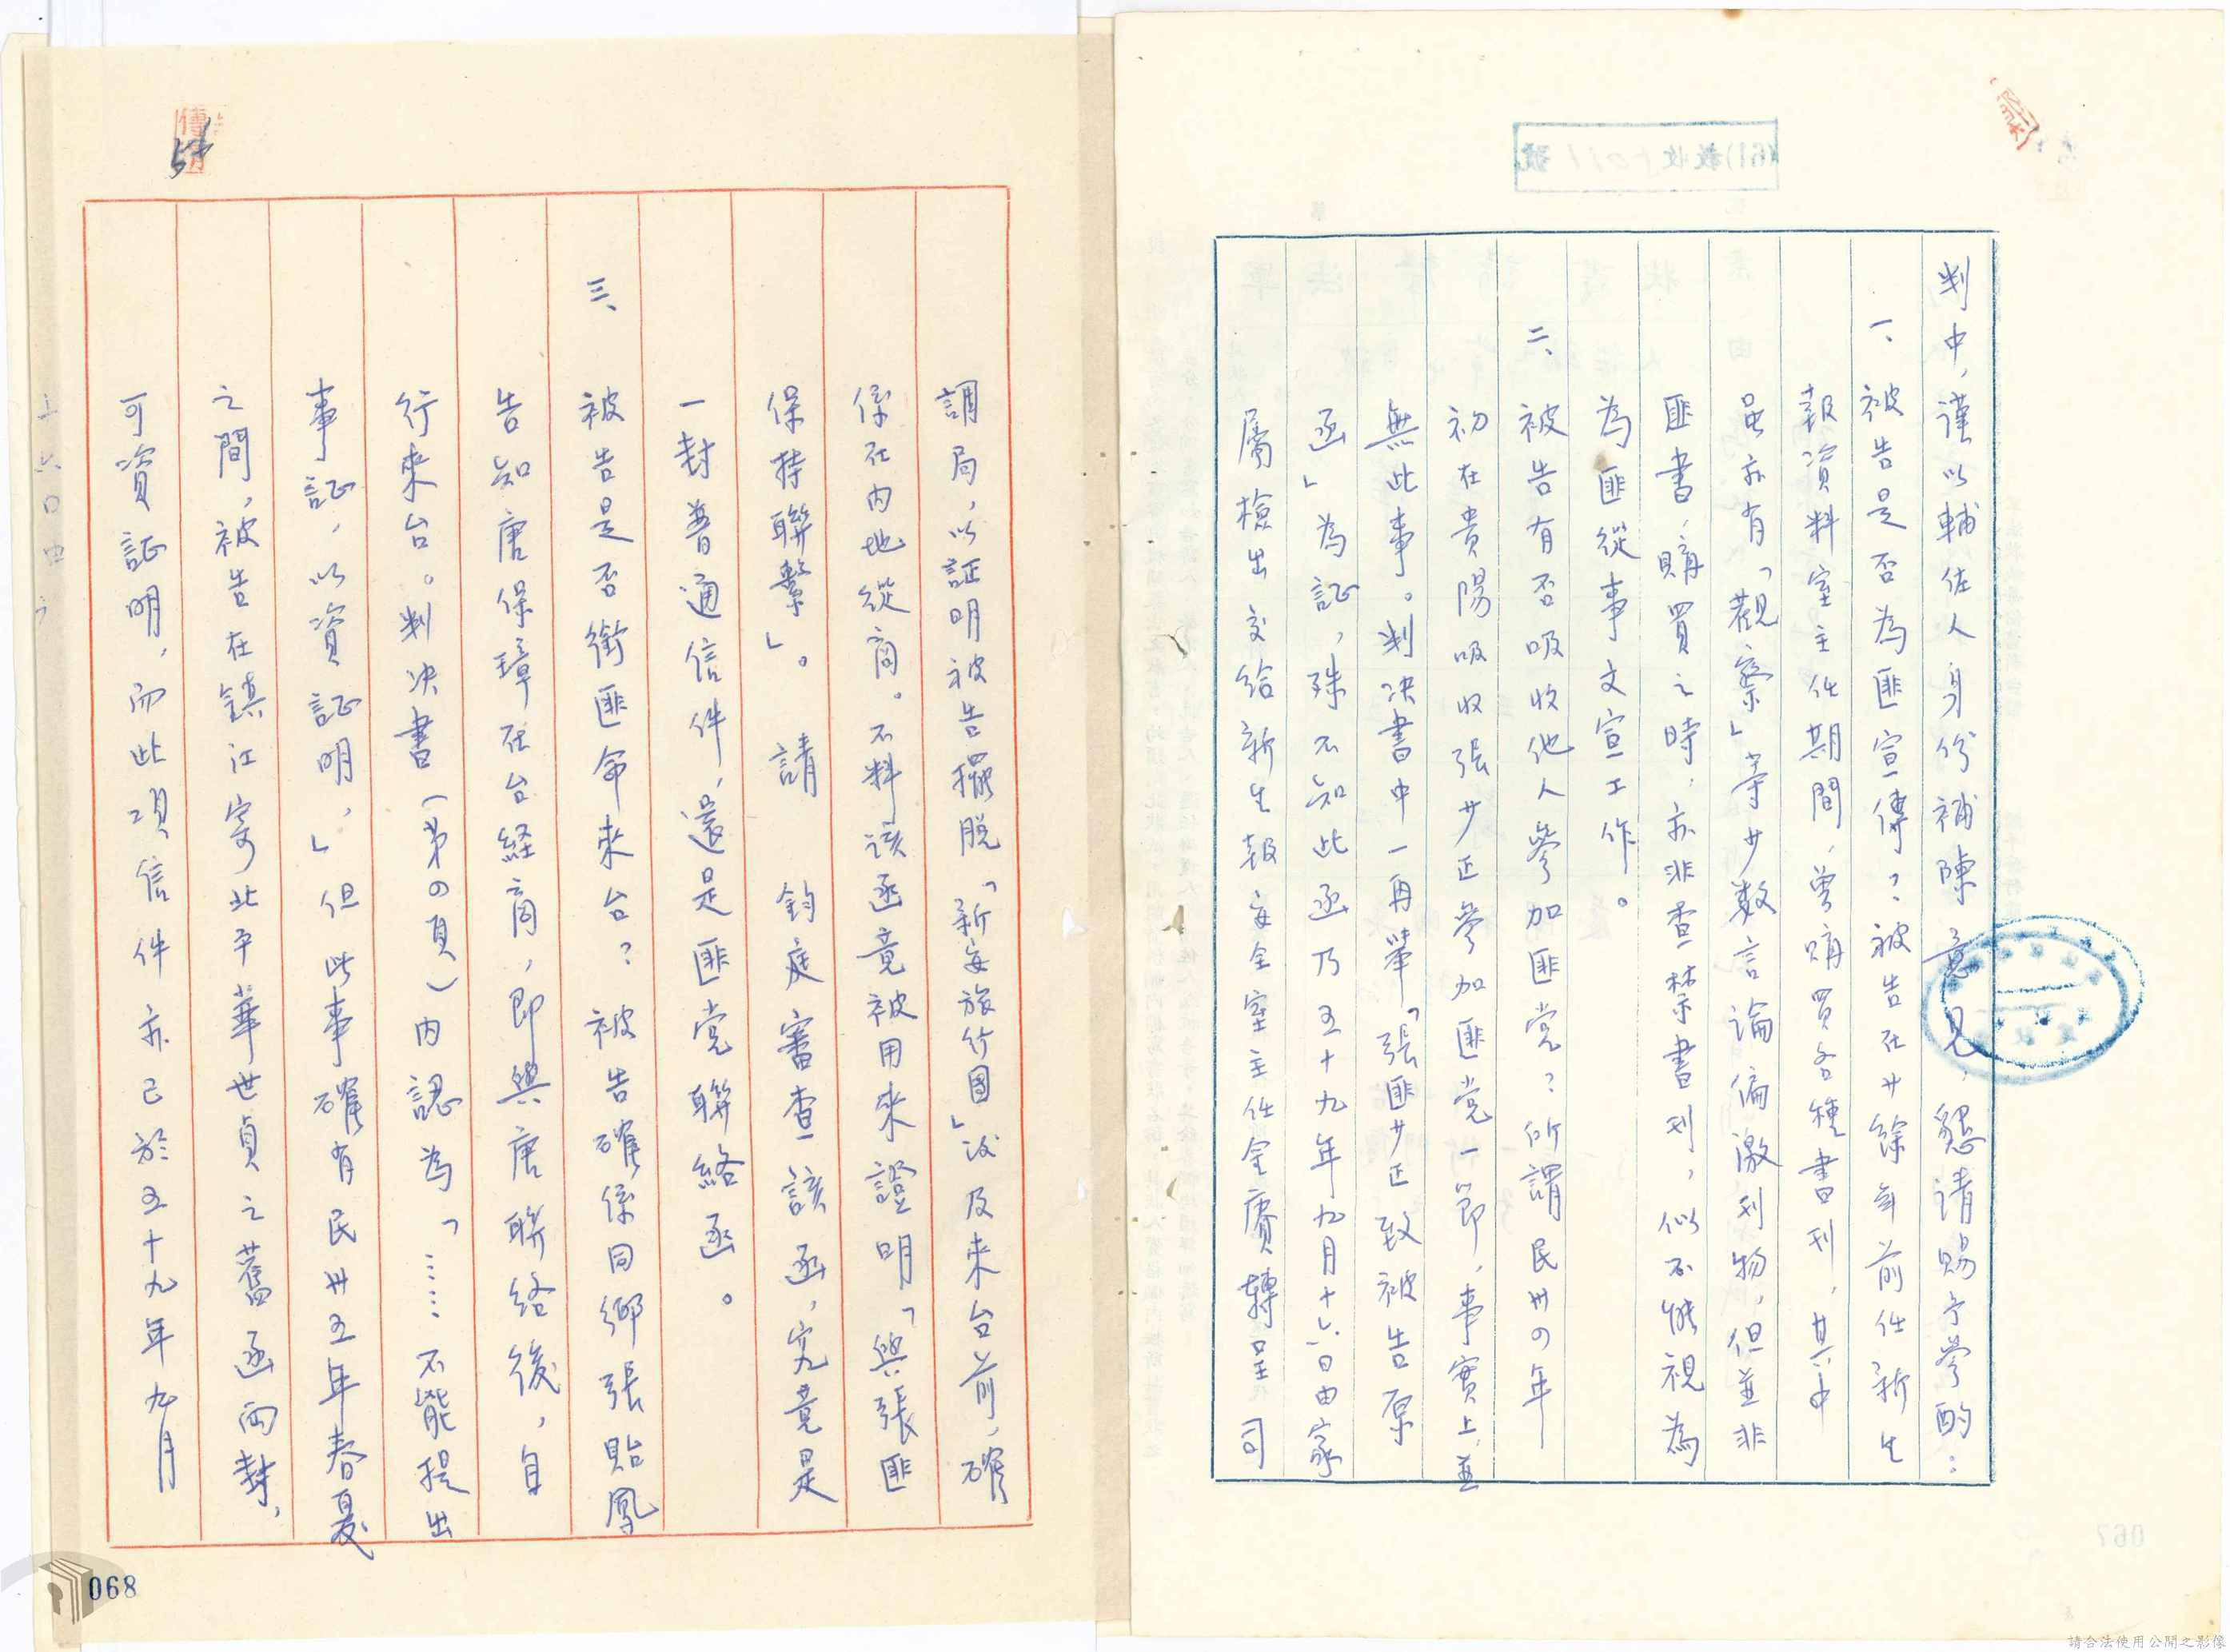 (61)教收十011號
判中，謹以輔佐人身份補陳意見，懇請賜予參酌：
一、被告是否為匪宣傳？被告在廿餘年前任新生
報資料室主任期間，曾購買各種書刊，其中
虽亦有「觀察」等少数言論偏激刊物，但並非
匪書，購買之時，亦非查禁書刊，似不能視為
為匪從事文宣工作。
二、被告有否吸收他人參加匪党？所謂民卅四年
初在貴陽吸收張少正參加匪党一節，事實上並
無此事。判决書中一再舉「張匪少正致被告原
函」為証，殊不知此函乃五十九年九月十六日由家
屬檢出交給新生報安全室主任金賡轉呈 司
調局，以証明被告擺脫「新安旅行團」後及来台前，確
係在内地從商。不料該函竟被用來證明「與張匪
保持聯繫」。請 鈞庭審查該函，究竟是
一封普通信件，還是匪党聯絡函。
三、被告是否銜匪命來台？被告確係同鄉張貽鳳
告知唐保璋在台経商，即與唐聯絡後，自
行來台。判决書（第四頁）内認為「……不能提出
事証，以資証明，」但此事確有民卅五年春夏
之間，被告在鎮江寄北平華世貞之舊函兩封，
可資証明，而此項信件亦已於五十九年九月
068
067
請合法使用公開之影像